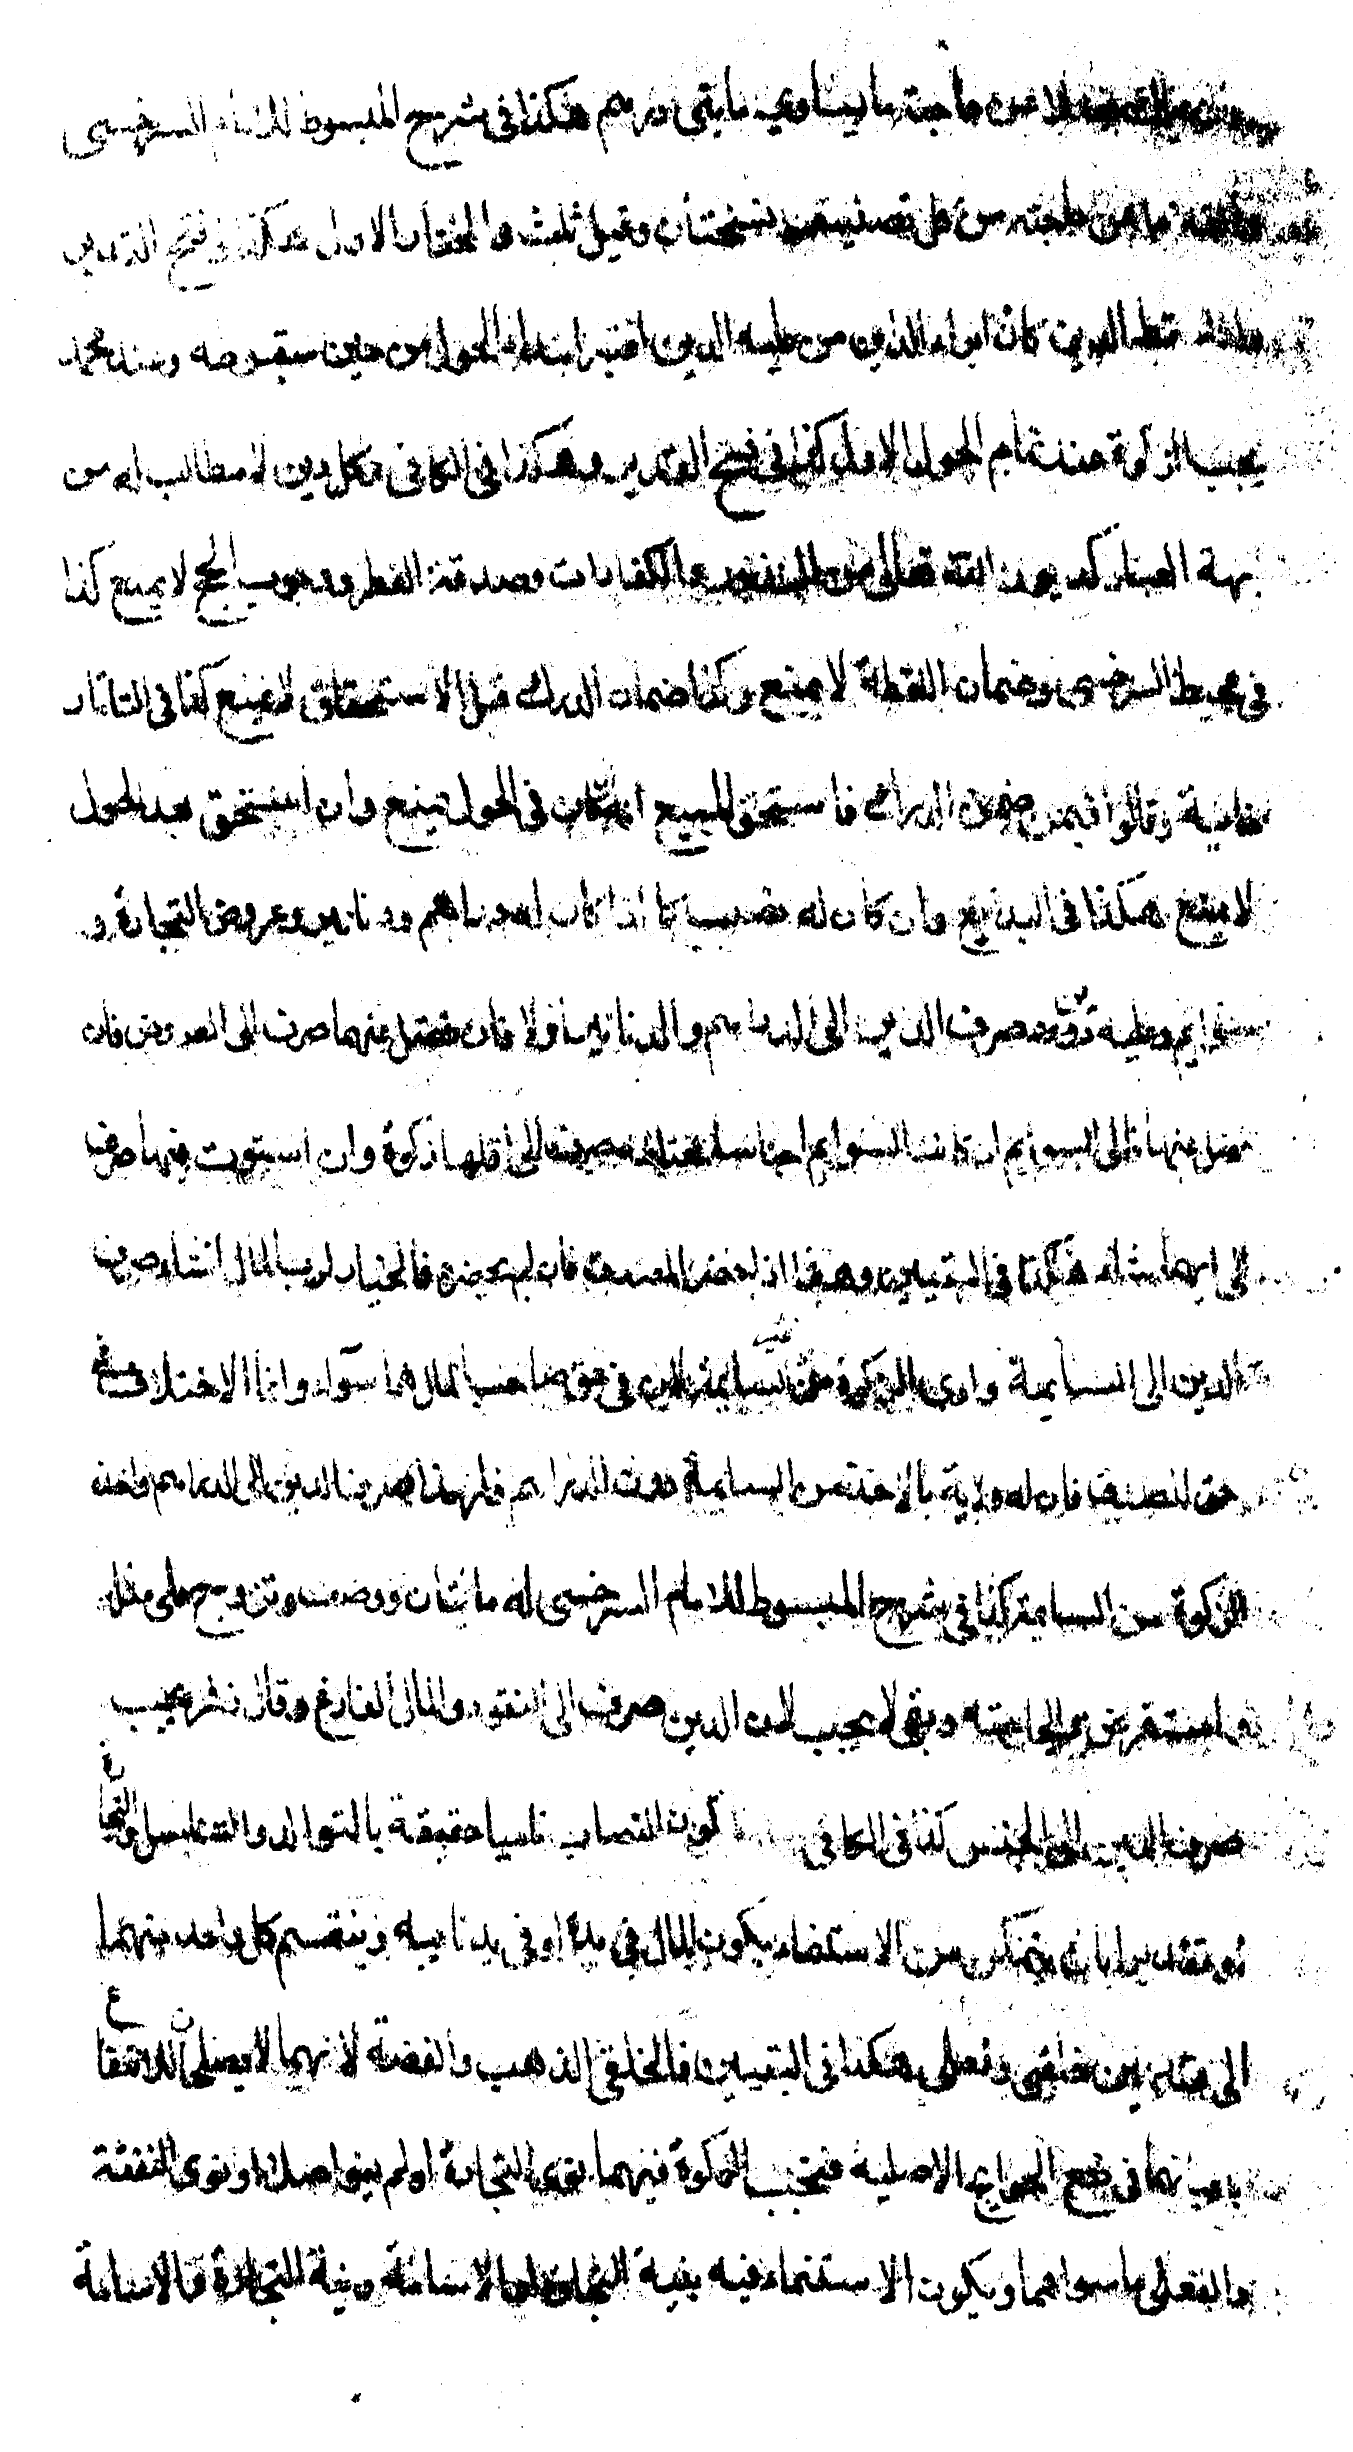 فضل عن حاجته ما يساوي مايتي درهم هكذا في شرح المبسوط للامام السرخسي
من حاجته من كل تصنيف نسختان وقيل ثلث والمختار الاول هكذا في فتح القدير
كان ابراء الداين من عليه الدين اعتبر ابتداء الحول من حين سقوطه وعند محمد
يجب الزكوة عند تمام الحول الاول كذا في فتح القدير وهكذا في الكافي وكل دين لا مطالب له من
جهة العباد كديون الله تعالى من النذور والكفارات وصدقة الفطر ووجوب الحج لا يمنع كذا
في محيط السرخسي وضمان اللقطة لا يمنع وكذا ضمان الدرك قبل الاستحقاق لا يمنع كذا في التاتار
خانية وقالوا فيمن ضمن الدرك فاستحق المبيع انه كان في الحول يمنع وان استحق بعد الحول
لا يمنع هكذا في البدايع وان كان له نصب كما اذا كان له دراهم ودنانير وعروض التجارة و
سوايم وعليه دين صرف الدين الى الدراهم والدنانير اولا فان فضل عنهما صرف الى العروض فان
فضل عنها فالى السوايم ان كانت السوايم اجناسا مختلفة صرف الى اقلها زكوة وان استوت فيها صرف
الى ايهما شاء هكذا في التبيين وهذا اذا حضر المصدق فان لم يحضر فالخيار لرب المال ان شاء صرف
الدين الى السايمة وادى الزكوة من السايمة لان في حق صاحب المال هما سواء وانما الاختلاف في
حق المصدق فان له ولاية بالاخذ من السايمة دون الدراهم فلهذا صرف الدين الى الدراهم واخذ
الزكوة من السايمة كذا في شرح المبسوط للامام السرخسي له مائتان ووصيف وتزوج على مثل
استقرض بر لحاجته وبقي لا يجب لان الدين صرف الى النقود والمال الفارغ وقال زفر يجب
صرف الدين الى الجنس كذا في الكافي كون النصاب ناميا حقيقة بالتوالد والتناسل والتجارة
او تقديرا بان يتمكن من الاستنماء بكون المال في يده او في يد نايبه وينقسم كل واحد منهما
الى قسمين خلقي وفعلي هكذا في التبيين فالخلقي الذهب والفضة لانهما لا يصلحان للانتفاع
باعيانهما في دفع الحوايج الاصلية فتجب الزكوة فيهما نوى التجارة او لم ينو اصلا او نوى النفقة
والفعلي ما سواهما ويكون الاستنماء فيه بنية التجارة او الاسامة ونية التجارة والاسامة